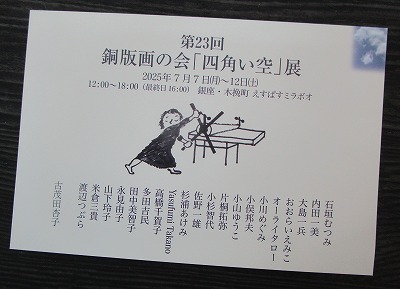 第23回
銅版画の会「四角い空」展
2025年7月7日(月)〜12日(土)
12:00〜18:00(最終日16:00) 銀座・木挽町 えすぱすミラボオ
石垣むつみ
内田一美
大島一兵
おおらいえみこ
オーライタロー
小川めぐみ
小俣邦夫
小山ゆうこ
片桐拓弥
小杉智代
佐野一雄
杉浦あけみ
Yasufumi Takano
高橋千賀子
多田吉民
田中美智子
永見由子
山下玲子
米倉三貴
渡辺つぶら
古茂田杏子